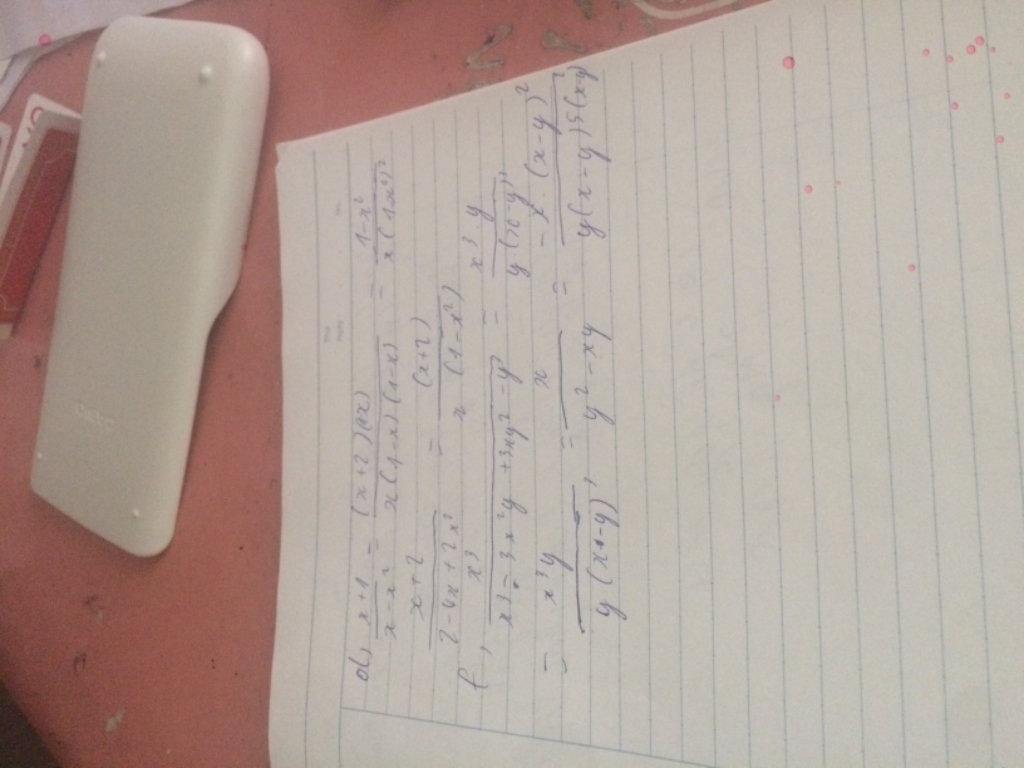 d, x+1 / x-x² = (x+2)(x) / x(1-x)(1-x) = 1-x² / x(1-x²)³
x+2 / 2-4x+2x² = (x+2) / x(1-x²)
f, x³ / x³-3x²y+3xy²-y³ = x³y / y(x-y)³
= x³y / y(x-y), = x / y²-xy = -x.(x-y)² / y(x-y)⁵(x-y)